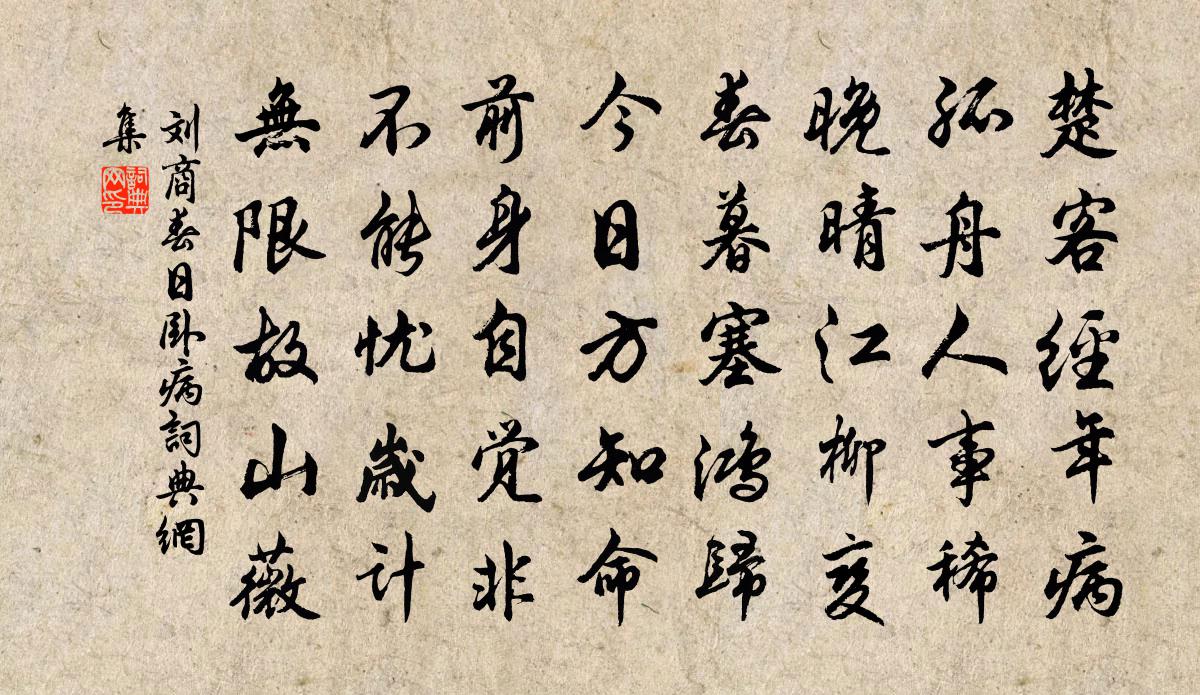 楚客經年病
孤舟人事稀
晚晴江柳变
春暮塞鴻歸
今日方知命
前身自觉非
不能忧歲计
無限故山薇
刘商春日卧病詞典網
集
詞典
网印